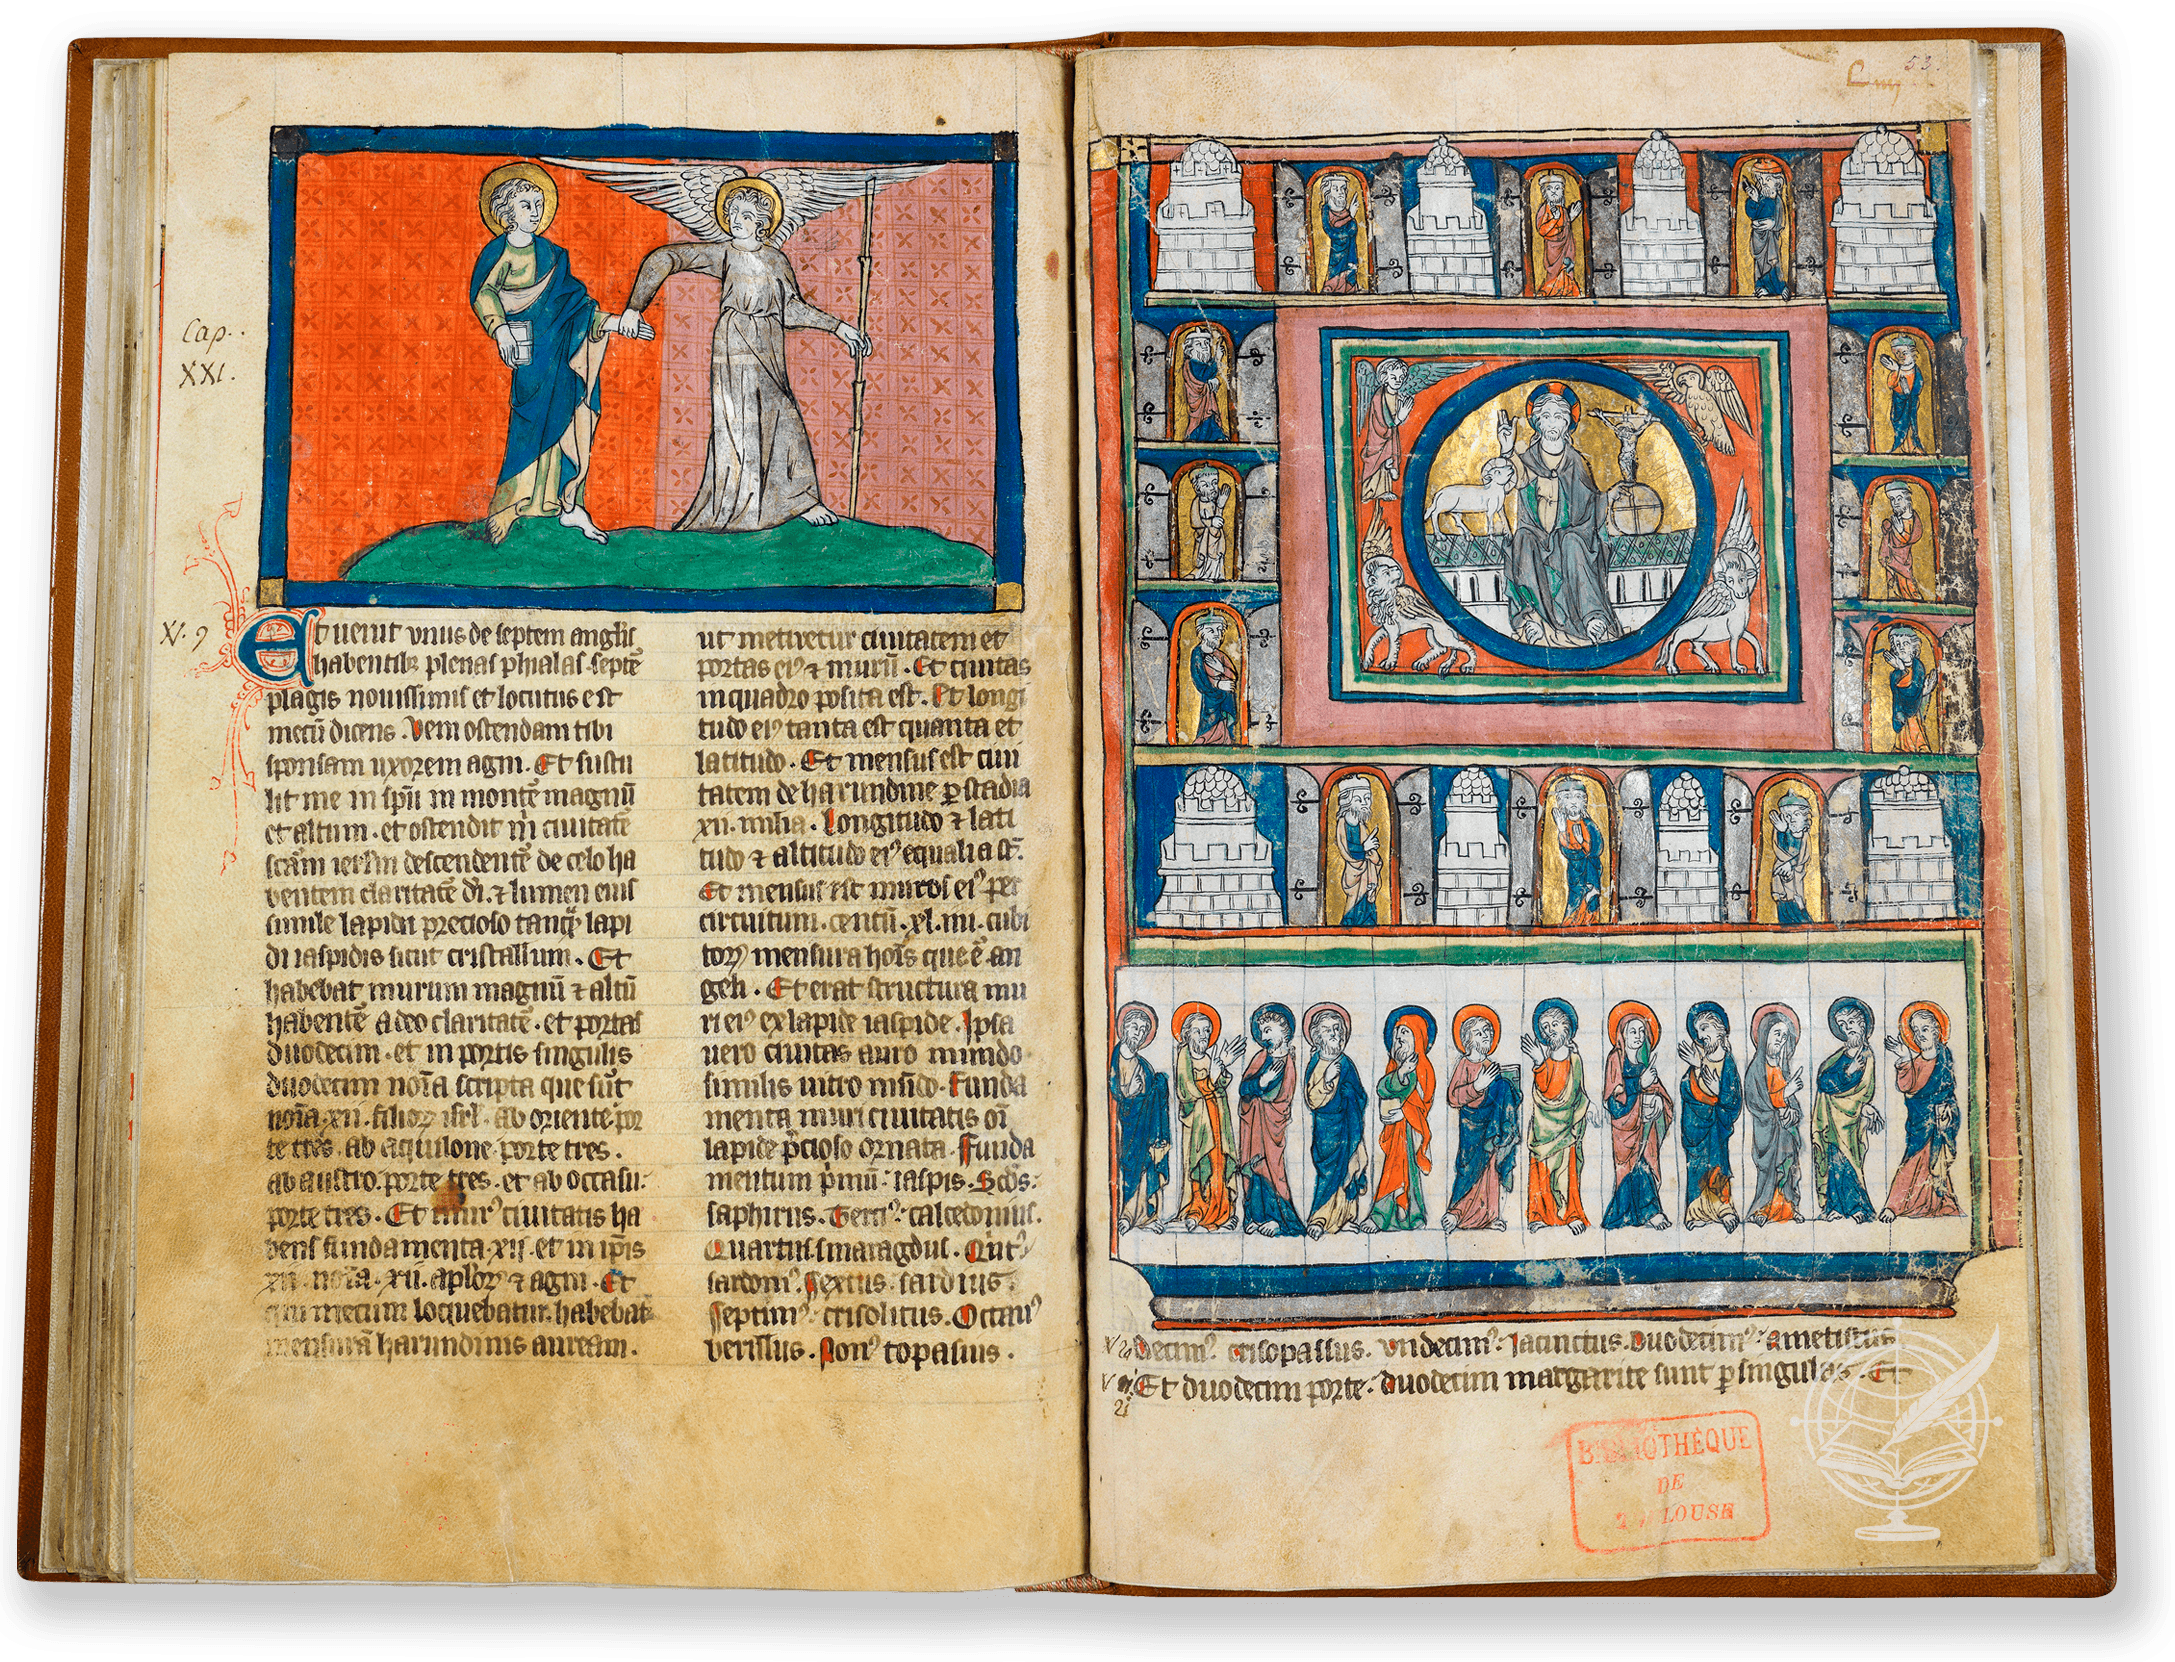 Cap.
XXI.
Et uenit vnus de septem anglis
habentibꝫ plenas phialas septē
plagis nouissimis et locutus est
mecū dicens. Veni ostendam tibi
sponsam uxorem agni. Et sustu
lit me in sp̄u in montē magnū
et altum. et ostendit m̄ ciuitatē
scām ierl̄m descendentē de celo ha
bentem claritatē dī. ⁊ lumen eius
simile lapidi precioso tanq̄ lapi
di iaspidis sicut cristallum. Et
habebat murum magnū ⁊ altū
habentē a deo claritatē. et portas
duodecim. et in portis singulis
duodecim noīa scripta que sūt
noīa .xii. filioꝝ isrl̄. ab oriente por
te tres. ab aquilone porte tres.
ab austro. porte tres. et ab occasu:
porte tres. Et murꝰ ciuitatis ha
bens fundamenta .xij. et in ip̄is
xii. noīa .xii. apl̄oꝝ ⁊ agni. Et
qui mecum loquebatur. habebat
mensurā harundinis auream.
ut metiretur ciuitatem et
portas eiꝰ ⁊ murū. Et ciuitas
in quadro posita est. Et longi
tudo eiꝰ tanta est quanta et
latitudo. Et mensus est ciui
tatem de harundine p̱ stadia
xii. milia. Longitudo ⁊ lati
tudo ⁊ altitudo eiꝰ equalia st̄.
Et mensus est muros eiꝰ per
circuitum. centū .xl. iiii. cubi
toꝝ mensura hoīs que ē an
geli. Et erat structura mu
ri eiꝰ ex lapide iaspide. Ipsa
uero ciuitas auro mundo
similis uitro mūdo. Funda
menta muri ciuitatis oī
lapide p̄cioso ornata. Funda
mentum p̄mū: iaspis. Scd̄s:
saphirus. Terciꝰ: calcedonius.
Quartus smaragdus. Qūtꝰ
sardonꝰ. Sextus. sardius.
Septimꝰ: crisolitus. Octauꝰ
berillus. Nonꝰ topasius.
53.
Decimꝰ. crisopassus. vndecimꝰ: Jacinctus. Duodecimꝰ: ametistus
Et duodecim porte. duodecim margarite sunt p̱ singulas. Et
BIBLIOTHÈQUE
DE
TOULOUSE